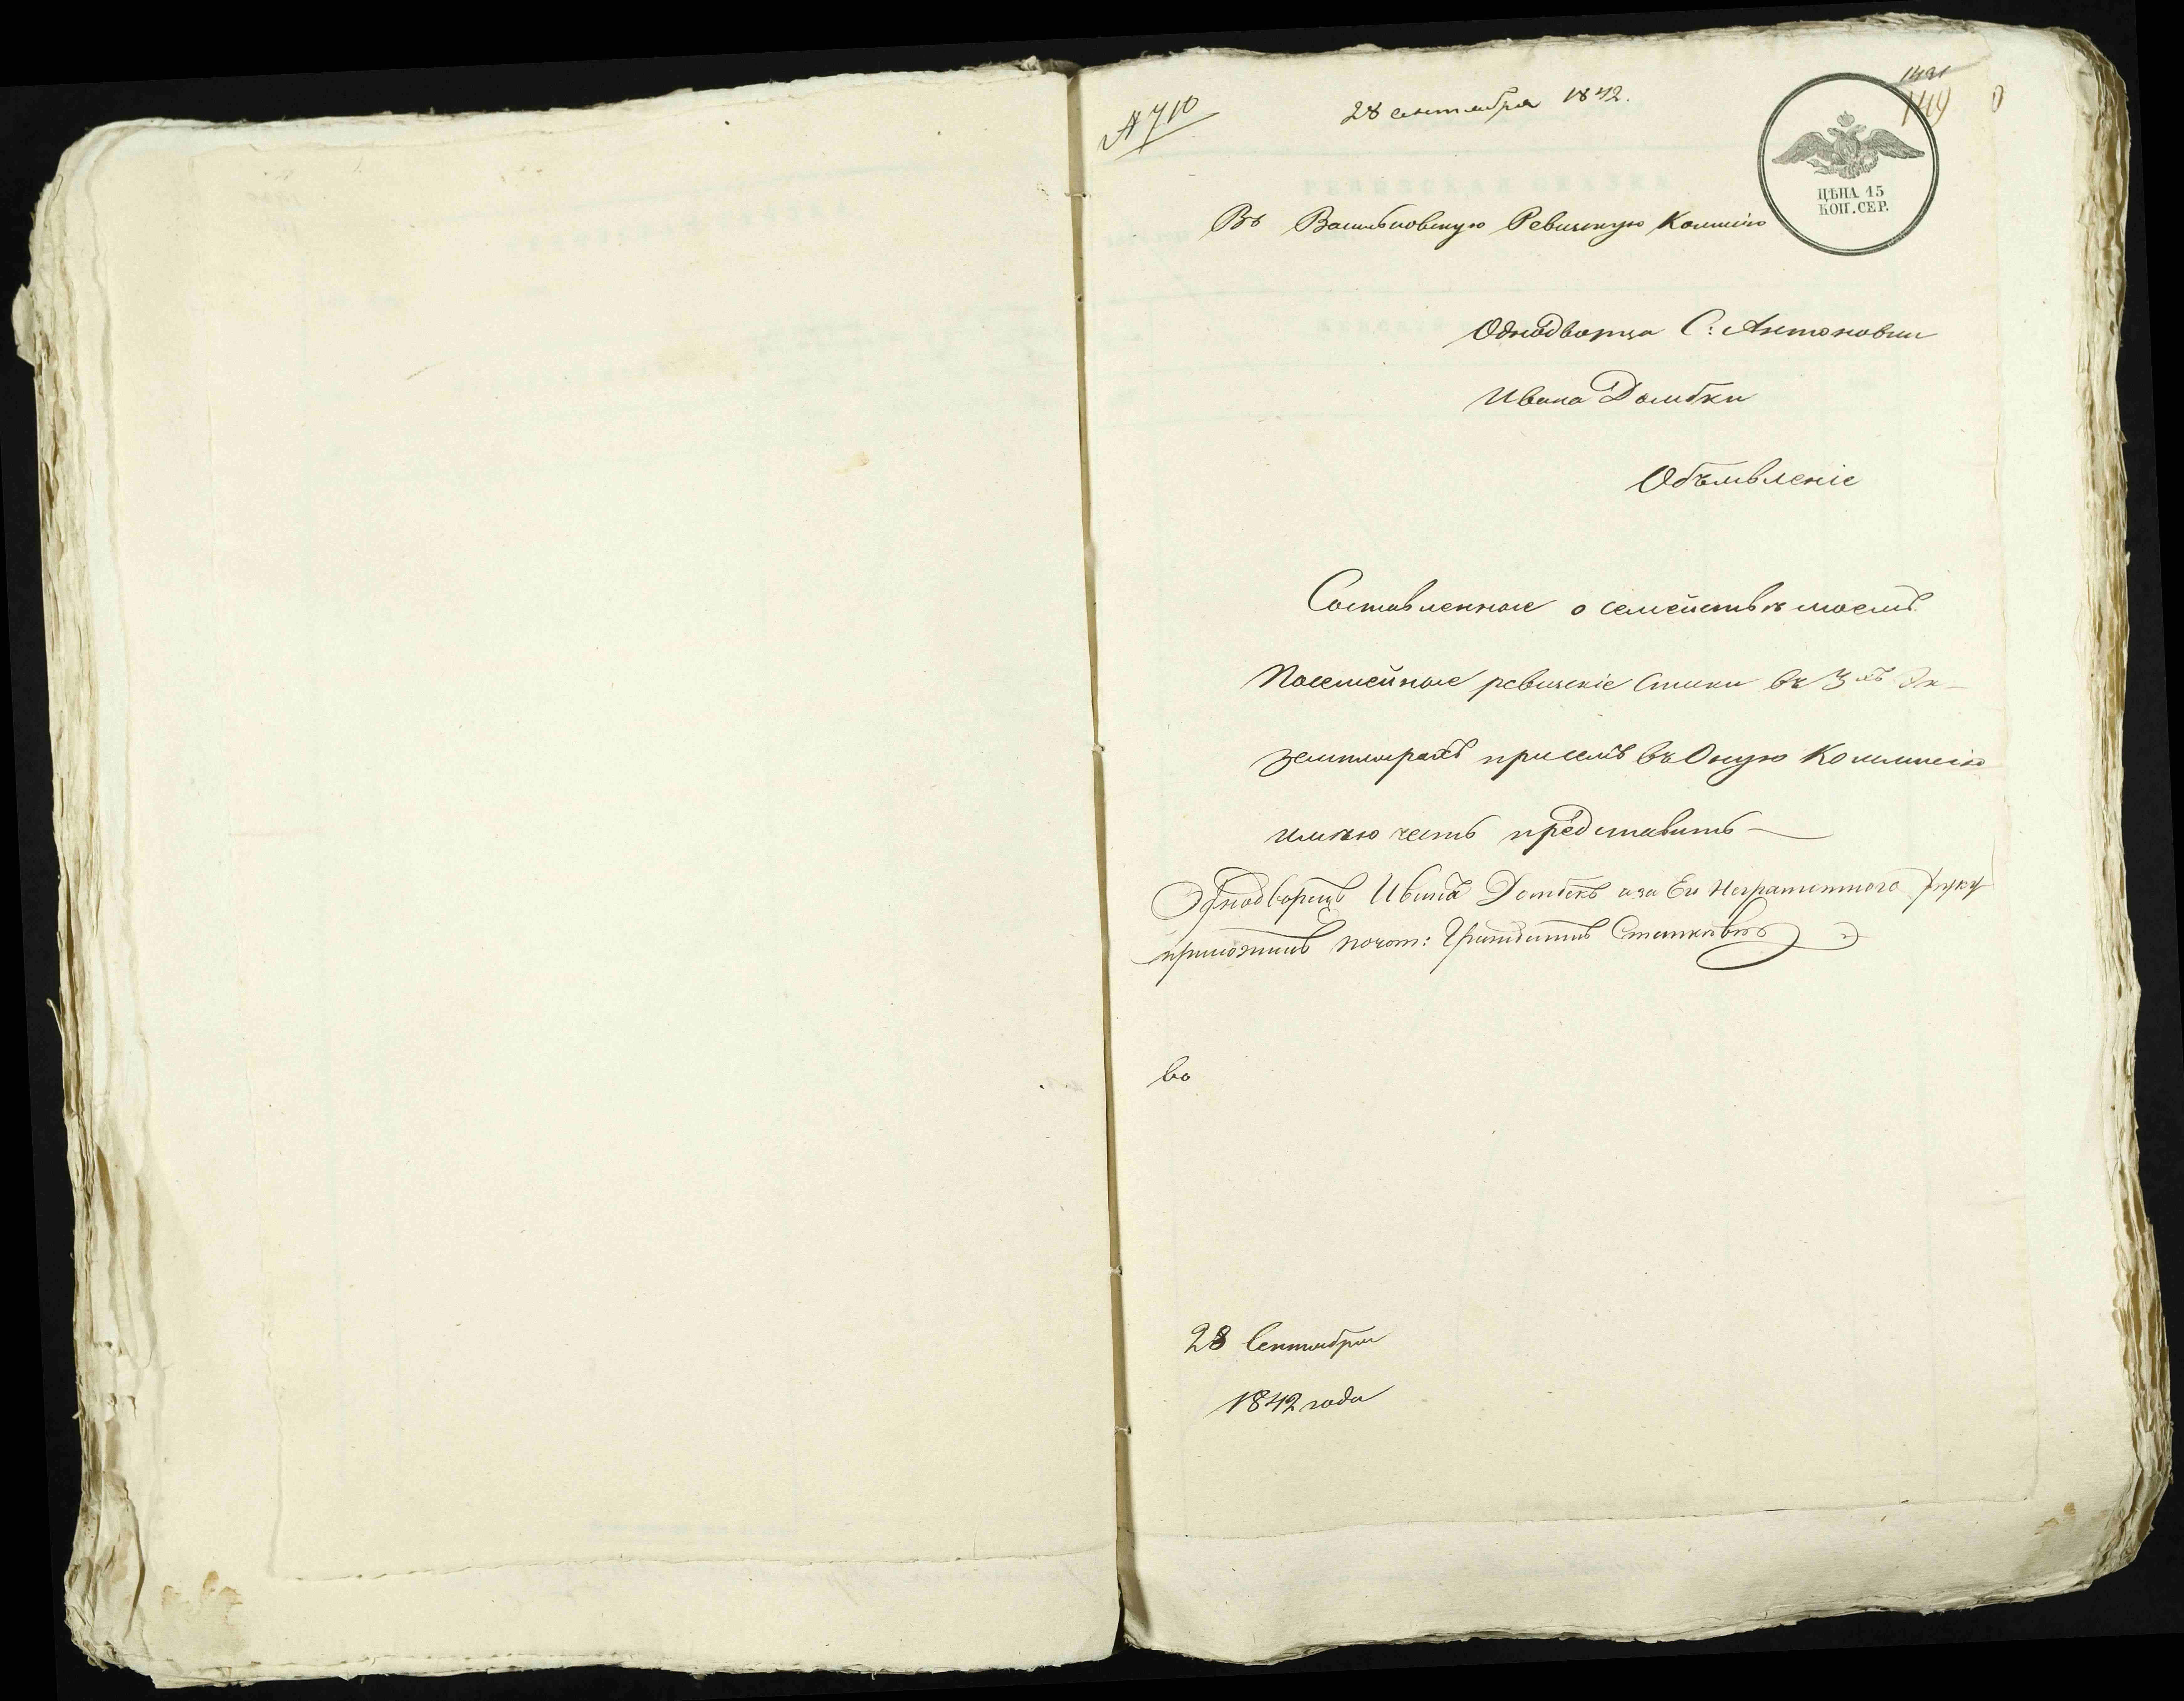 № 710
28 сентября 1842.
149
ЦѢНА 15
КОП. СЕР.
Въ Васильковскую Ревизскую Комисію
Однодворца С: Антоновки
Ивана Домбки
Объявленіе
Составленные о семействѣ моемъ
Посемейные ревизскіе списки въ 3хъ Эк-
земплярахъ присемъ въ Оную Коммисію
имѣю честь представить —
Однодворецъ Иванъ Домбекъ а за Его Неграмотного руку
приложилъ почот: Гражданинъ Станкевичъ
во
28 Сентября
1842 года